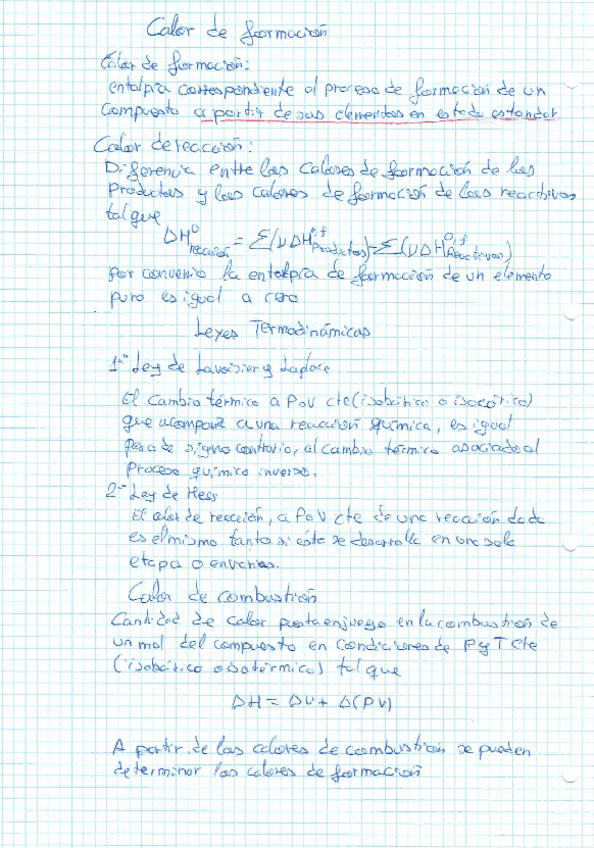 Calor de formación
Calor de formación:
entalpía correspondiente al proceso de formación de un
compuesto a partir de sus elementos en estado estandar
Calor de reacción:
Diferencia entre los calores de formación de los
Productos y los calores de formación de los reactivos
tal que
ΔH⁰reacción = Σ(νΔH⁰,fProductos) - Σ(νΔH⁰,fReactivos)
por convenio la entalpía de formación de un elemento
puro es igual a cero
Leyes Termodinámicas
1ª Ley de Lavoisier y Laplace
El cambio térmico a P o V cte (isobárico o isocórico)
que acompaña a una reacción química, es igual
pero de signo contrario, al cambio térmico asociado al
Proceso químico inverso.
2ª Ley de Hess
El calor de reacción, a P o V cte de una reacción dada
es el mismo tanto si éste se desarrolla en una sola
etapa o en varias.
Calor de combustión
Cantidad de calor puesta en juego en la combustión de
un mol del compuesto en condiciones de P y T cte
(isobárico o isotérmico) tal que
ΔH = ΔU + Δ(PV)
A partir de los calores de combustión se pueden
determinar los calores de formación